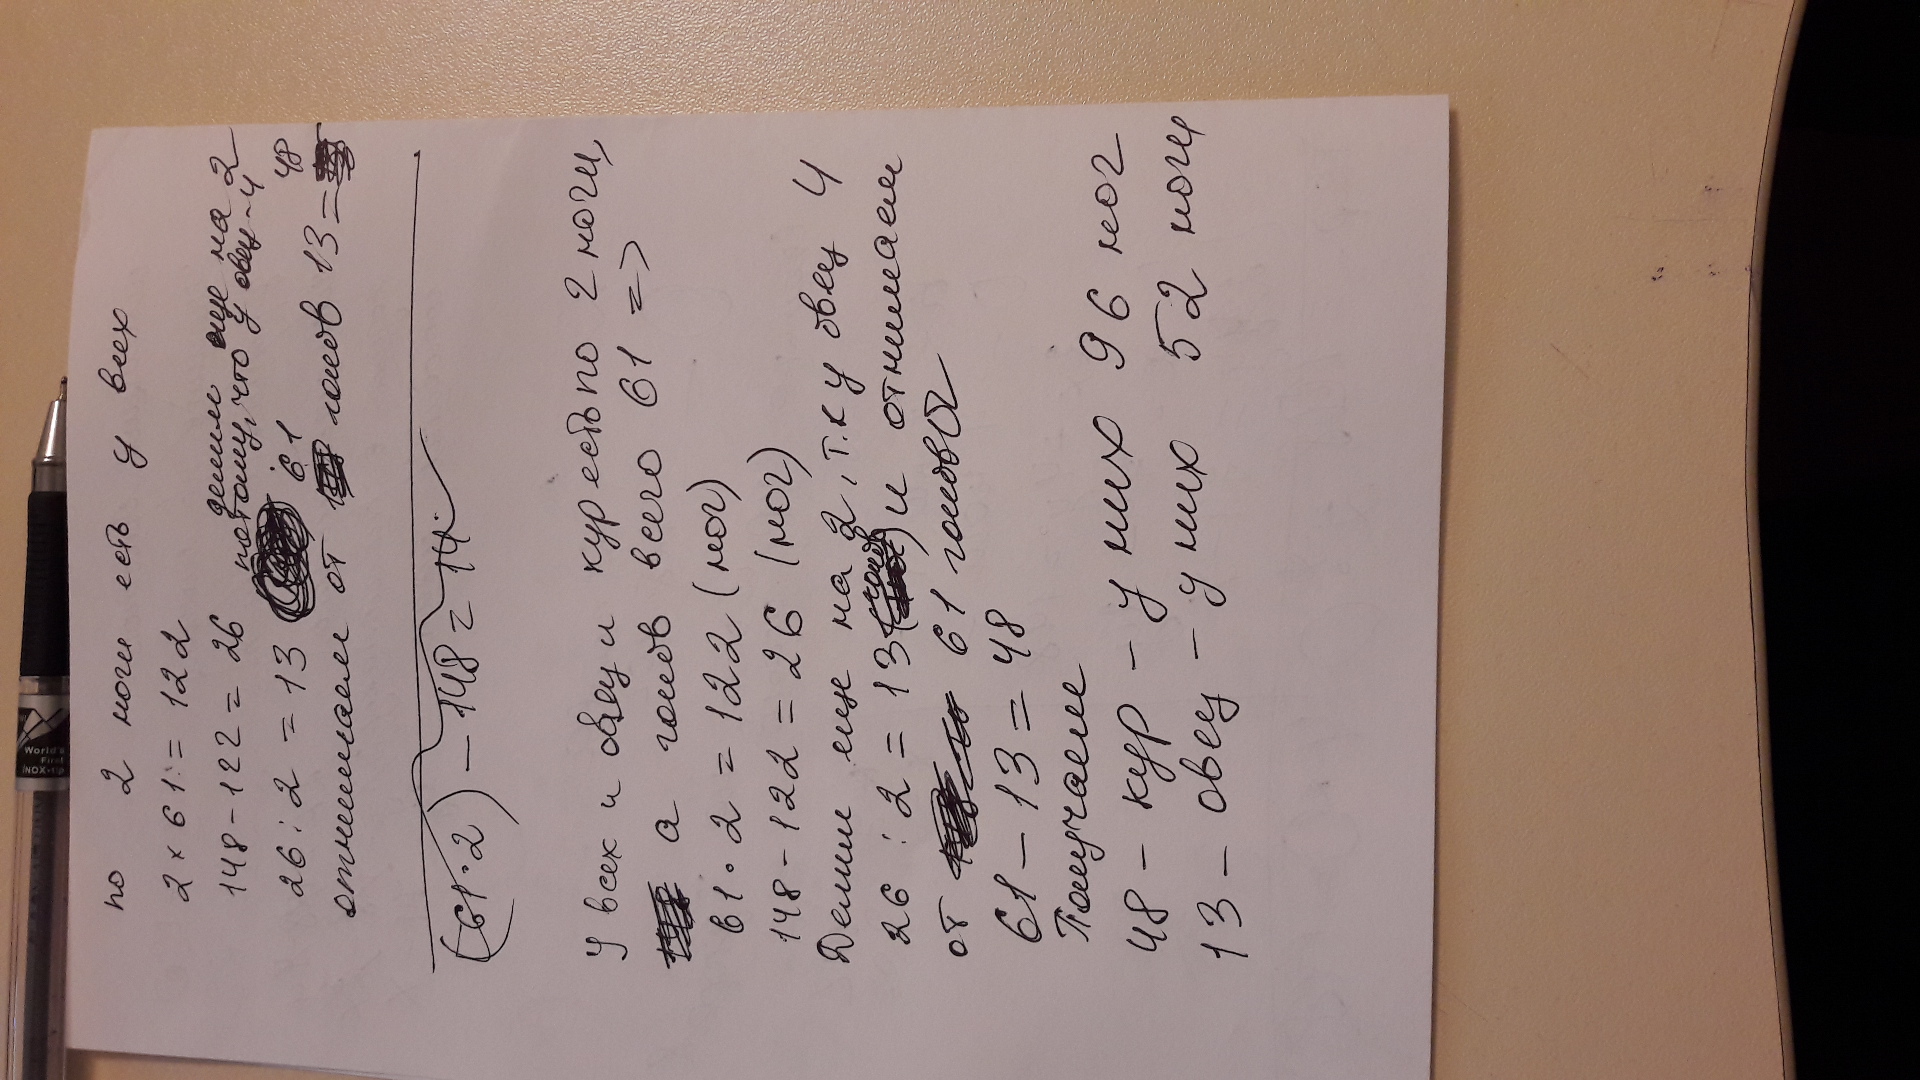 по 2 ноги есть у всех
2 × 61 = 122
148 - 122 = 26
делим еще на 2
потому, что у овец - 4
26 : 2 = 13
отнимаем от 61 голов 13 = 48
(61·2) - 148 = 14
У всех и овец и кур есть по 2 ноги,
а голов всего 61 =>
61 · 2 = 122 (ног)
148 - 122 = 26 (ног)
Делим еще на 2, т.к у овец 4
26 : 2 = 13 (голов) и отнимаем
от 61 головы
61 - 13 = 48
Получаем
48 - кур - у них 96 ног
13 - овец - у них 52 ноги
World's
First
INOX-tip